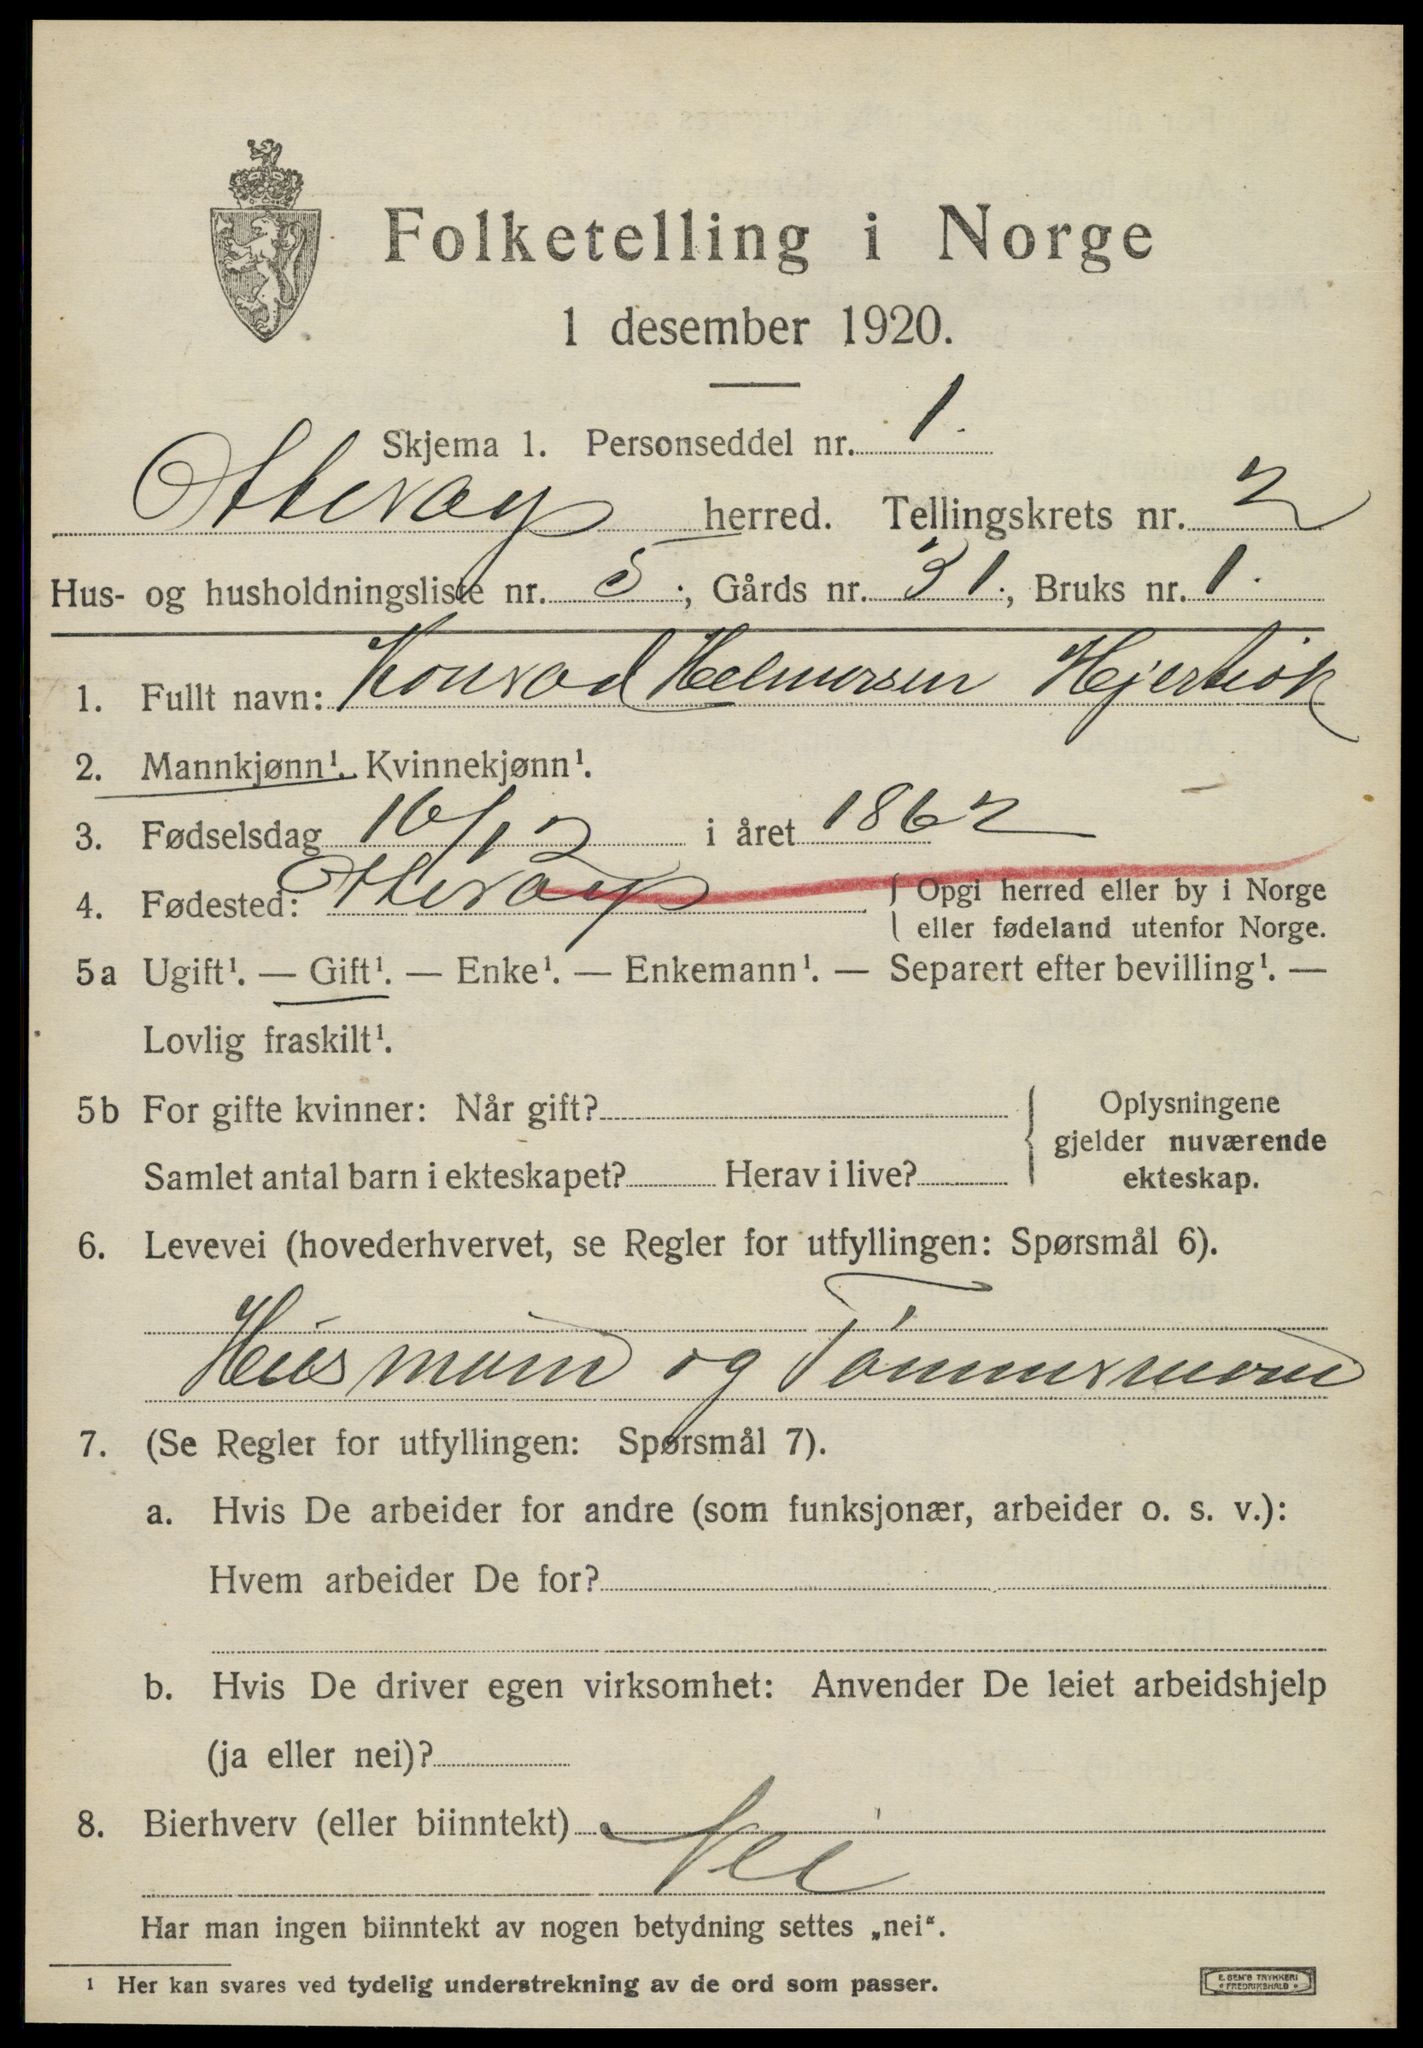 Folketelling i Norge
1 desember 1920.
Skjema 1. Personseddel nr. 1.
Otterøy herred. Tellingskrets nr. 2
Hus- og husholdningsliste nr. 5.; Gårds nr. 31., Bruks nr. 1.
1. Fullt navn: Konrad Helmersen
2. Mannkjønn¹. Kvinnekjønn¹.
3. Fødselsdag 16/12 i året 1862
4. Fødested: Otterøy { Opgi herred eller by i Norge
eller fødeland utenfor Norge.
5a Ugift¹. — Gift¹. — Enke¹. — Enkemann¹. — Separert efter bevilling¹. —
Lovlig fraskilt¹.
5b For gifte kvinner: Når gift?
Samlet antal barn i ekteskapet? Herav i live?
Oplysningene
gjelder nuværende
ekteskap.
6. Levevei (hovederhvervet, se Regler for utfyllingen: Spørsmål 6).
Husmand og Tømmermand
7. (Se Regler for utfyllingen: Spørsmål 7).
a. Hvis De arbeider for andre (som funksjonær, arbeider o. s. v.):
Hvem arbeider De for?
b. Hvis De driver egen virksomhet: Anvender De leiet arbeidshjelp
(ja eller nei)?
8. Bierhverv (eller biinntekt) Nei
Har man ingen biinntekt av nogen betydning settes „nei“.
¹ Her kan svares ved tydelig understrekning av de ord som passer.
E. SEM'S TRYKKERI
FREDRIKSHALD